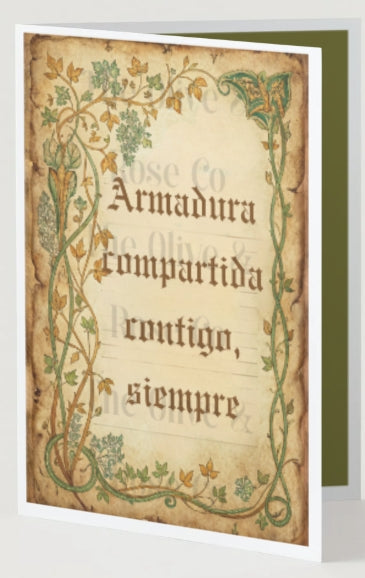 Armadura
compartida
contigo,
siempre
Olive &
Rose Co
The Olive &
Rose Co
The Olive &